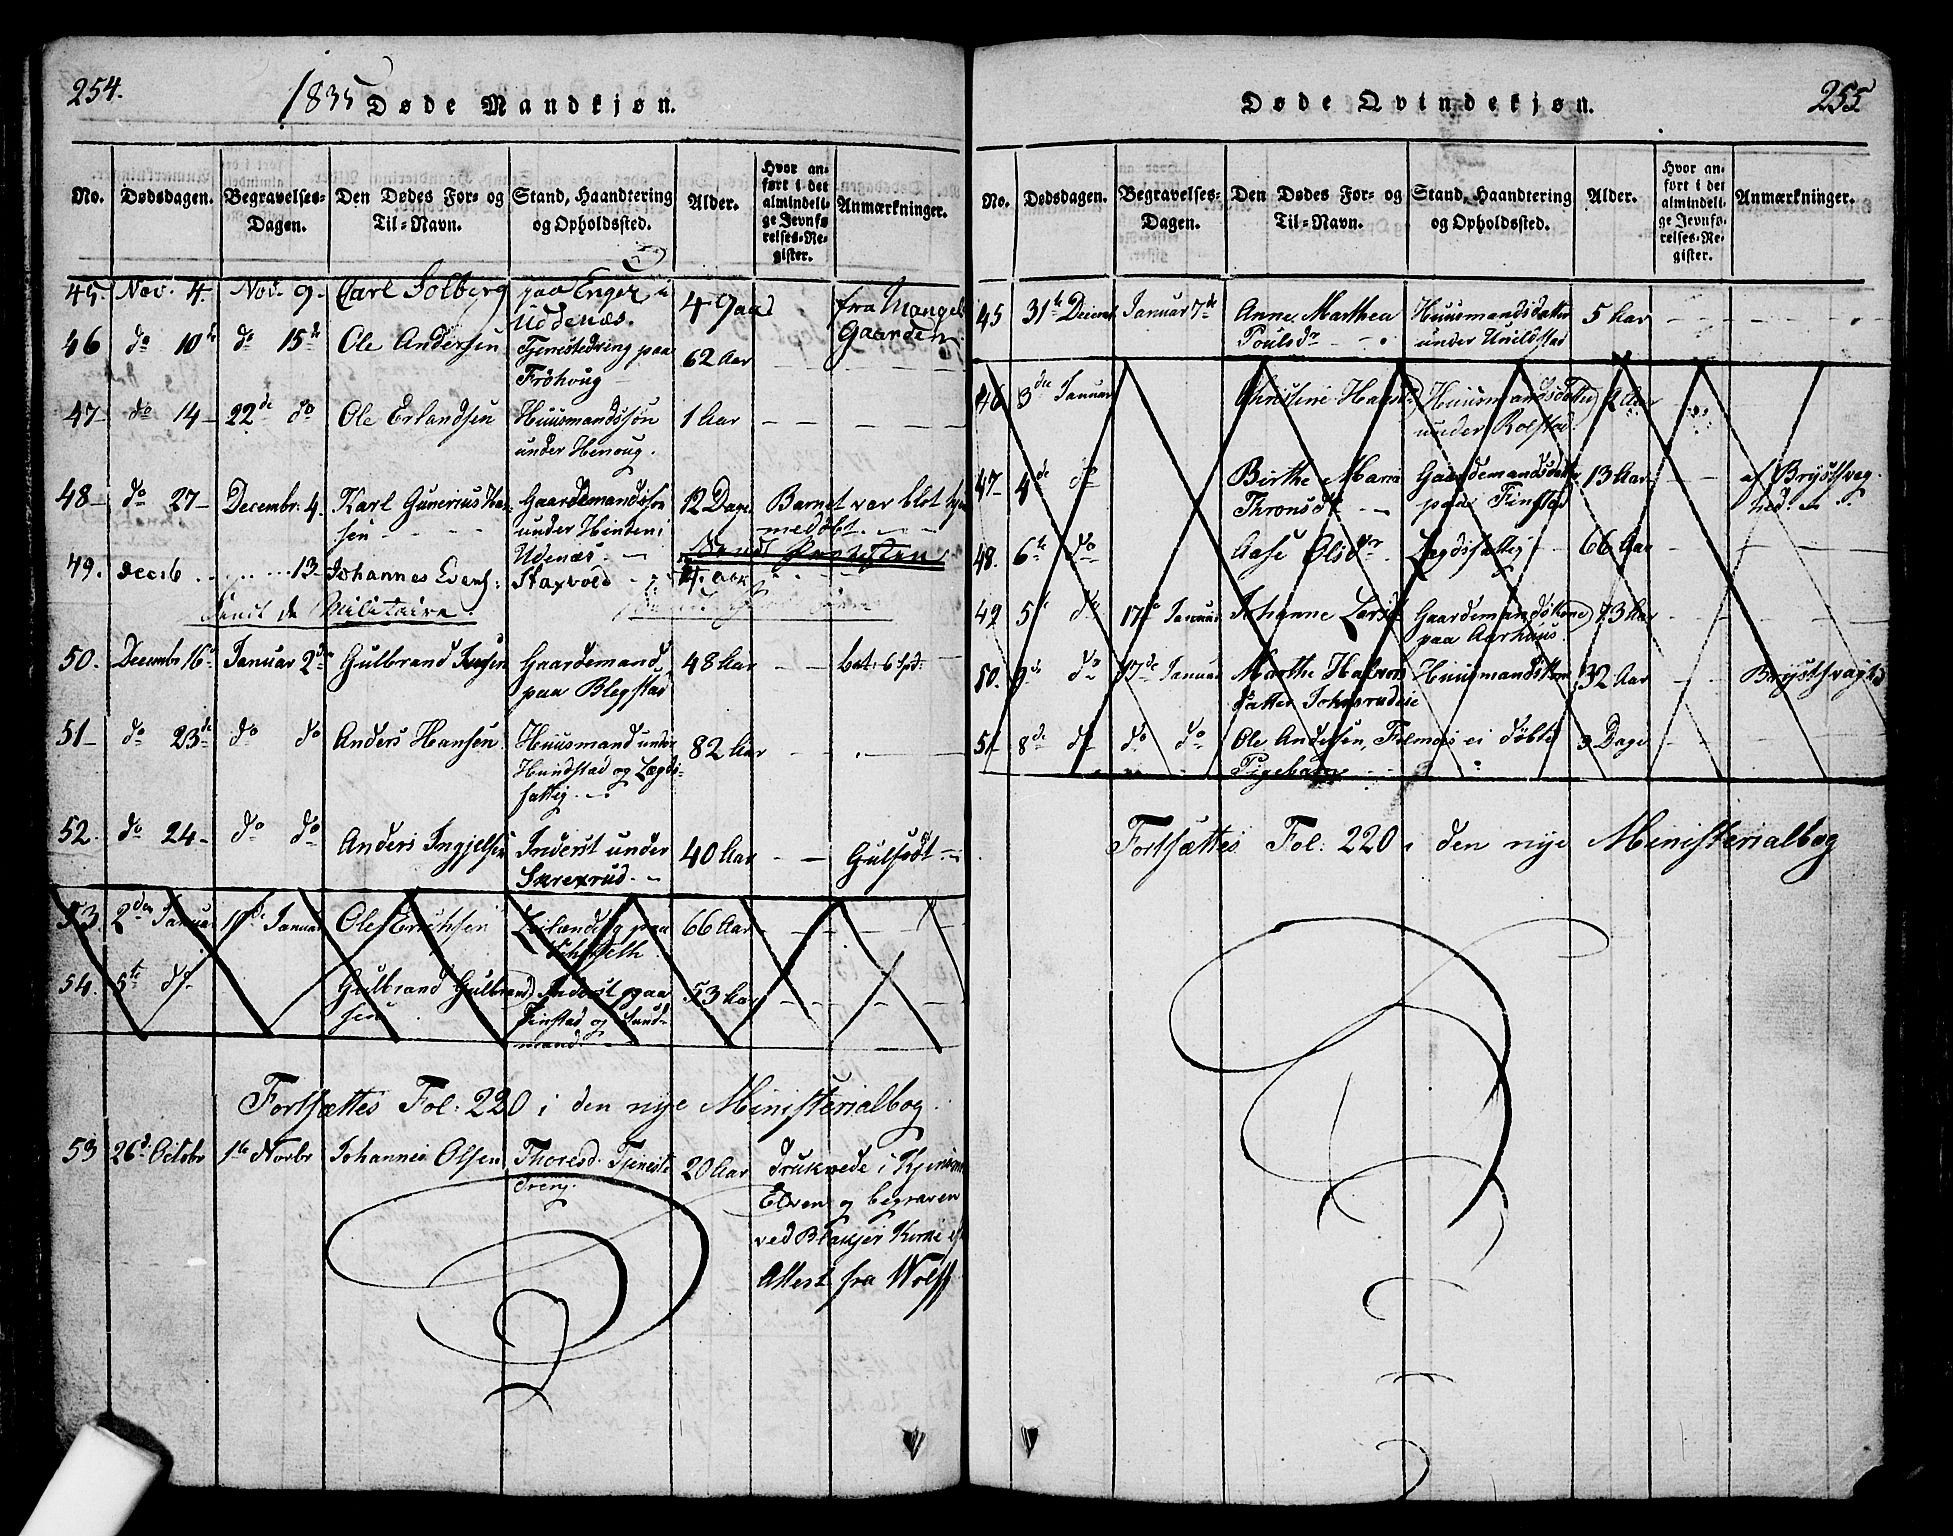 254.
1835 Døde Mandkjøn.
No. Dødsdagen. Begravelses-Dagen. Den Dødes For- og Til-Navn. Stand, Haandtering og Opholdssted. Alder. Hvor anført i det almindelige Jevnførelses-Register. Anmærkninger.
45. Nov. 4. Nov. 9. Carl Solberg paa Enger i
Uddenæs.
fra Mangels
Gaarden
46 do 10de do 15de Ole Andersen Tjenestedreng paa 62 Aar
Frøhoug
47 do 14 22de do Ole Erlandsen Huusmandssøn 1 Aar
under Henoug.
48 do 27 Decembr. 4. Karl Gunerius Han- Gaardemandssøn 12 Dage Barnet var blot
sen under Hinden i
Udenæs.
49. Decb 6 13 Johannes Evens: Staxvold
Sendt de Militaire
50. Decembr 16de Januar 2den Gulbrand Jensen Gaardemand 48 Aar bet: 6 spd:
paa Blegstad
51 do 23de do do Anders Hansen Huusmand under 82 Aar
Hundstad og Lægds-
fattig.
52. do 24 do do Anders Ingjelsen Inderst under 40 Aar Gulsodt
Skrexrud.
53. 2den Januar 19de Januar Ole Erichsen Leilænding paa 66 Aar
54. 5te do Gulbrand Gulbrand- Inderst paa 53 Aar
sen Finstad og Sand-
mand.
Fortsættes Fol: 220 i den nye Ministerialbog.
53 26d. Octobr 1te Novbr Johannes Olsen Thoresd. Tjeneste 20 Aar Druknede i
dreng. Elven og begraven
ved Blakjer Kirke
Attest fra Wolff
255
Døde Qvindekjøn.
No. Dødsdagen. Begravelses-Dagen. Den Dødes For- og Til-Navn. Stand, Haandtering og Opholdssted. Alder. Hvor anført i det almindelige Jevnførelses-Register. Anmærkninger.
45 31te Decembr Januar 7de Anne Marthea Huusmandsdatter 5 Aar
Poulsdr under
46 3die Januar Christine Hans- Huusmandsdatter 2 Aar
under Rolstad
47 4de do Birthe Maria Gaardemandsdatter 13 Aar af Brystsvag-
Thronsdr paa Finstad hed.
48. 6te do Aase Olsdr Lægdsfattig 66 Aar
49 5te do 17de Januar Johanne Larsdr Gaardemandskone 73 Aar
paa Aarhuus.
50. 9de do 17de Januar Marthe Halvors- Huusmandskone 32 Aar Brystsvaghed
datter Johnsrudeie
51 8de do do do Ole Andersen, ei døbte 3 Dage
Pigebarn
Fortsættes Fol: 220 i den nye Ministerialbog